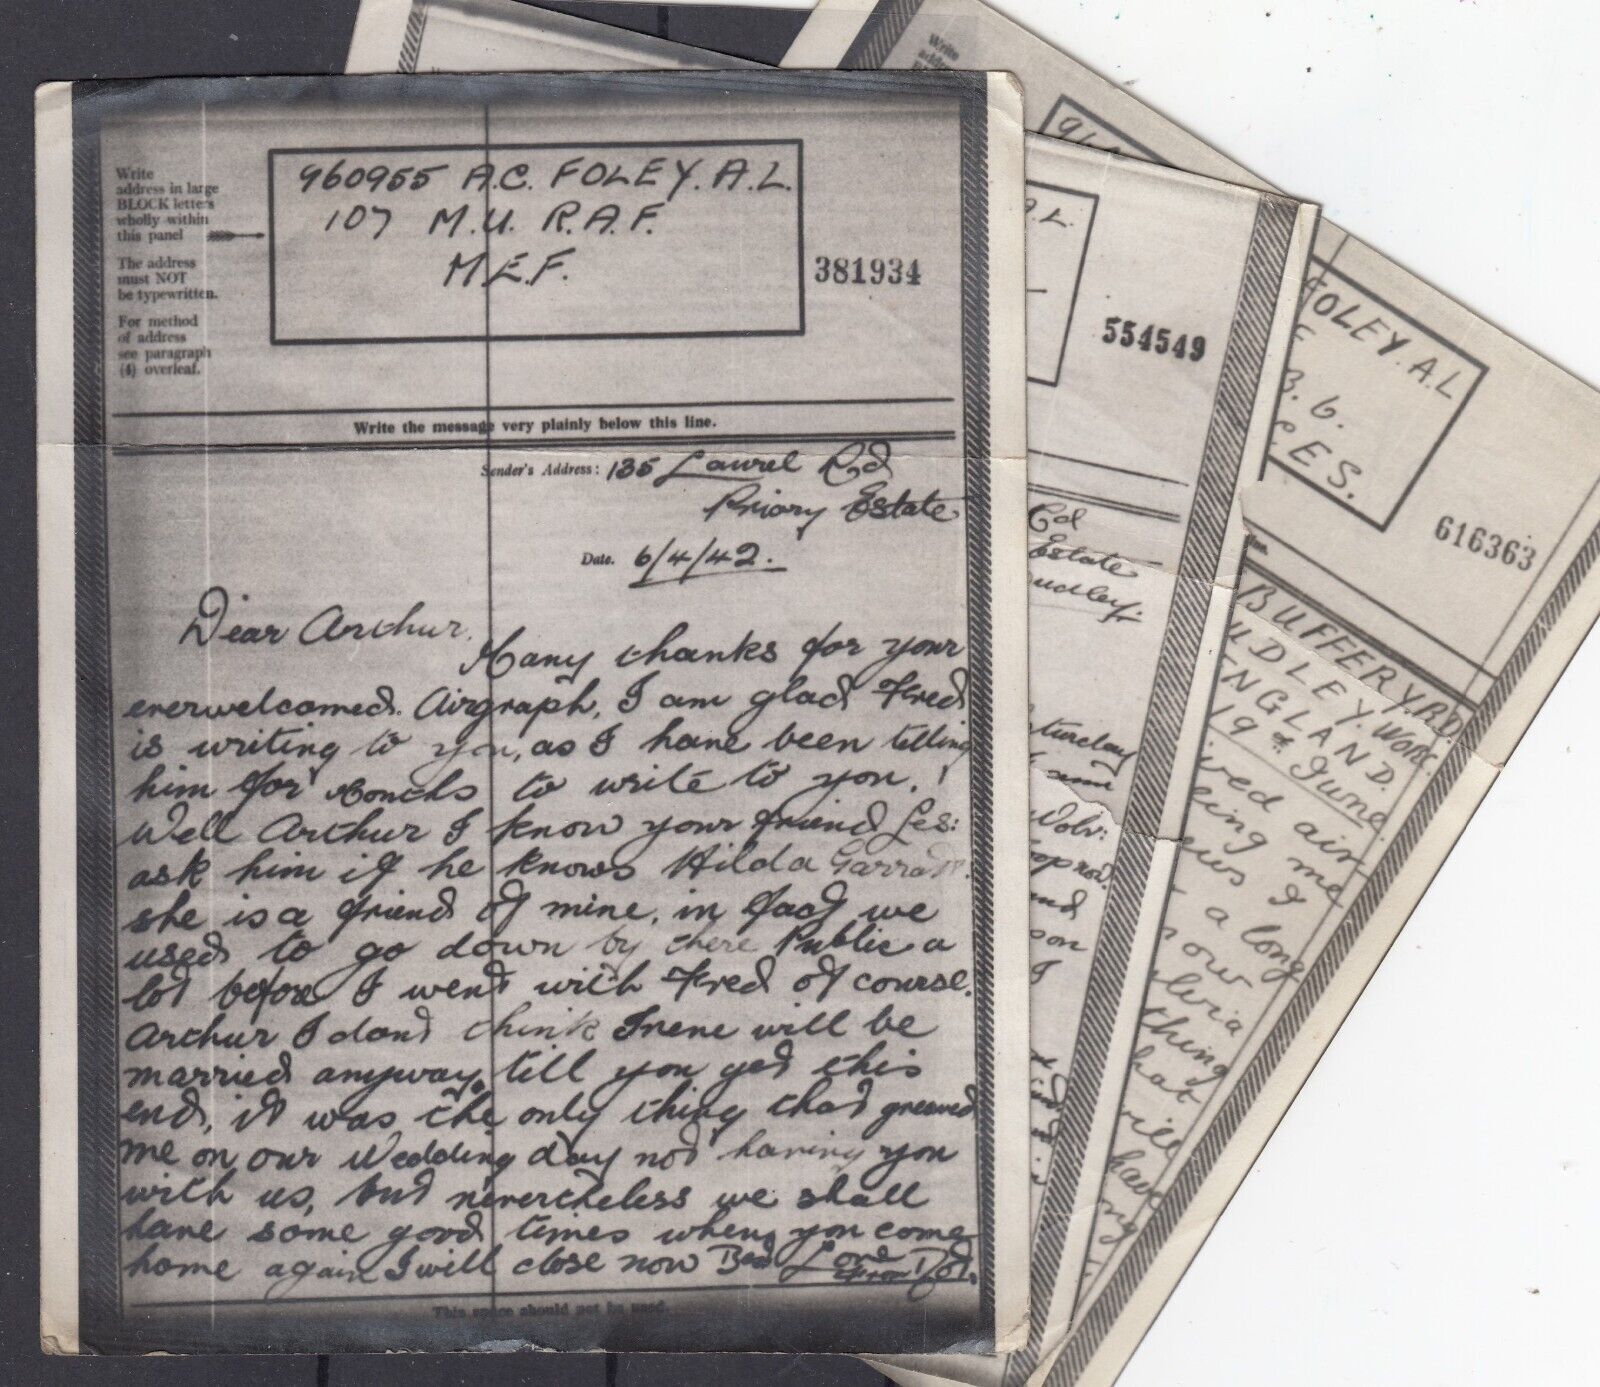 Write
address in large
BLOCK letters
wholly within
this panel
The address
must NOT
be typewritten.
For method
of address
see paragraph
(4) overleaf.
960955 A.C. FOLEY. A.L.
107 M.U. R.A.F.
M.E.F.
381934
Write the message very plainly below this line.
Sender's Address: 135 Laurel Rd
Priory Estate
Date. 6/4/42.
Dear Arthur.
Many thanks for your
everwelcomed Airgraph, I am glad Fred
is writing to you, as I have been telling
him for months to write to you.
Well Arthur I know your friend Les:
ask him if he knows Hilda Garratt.
she is a friend of mine, in fact we
used to go down by there Public a
lot before I went with Fred of course.
Arthur I dont think Irene will be
married anyway till you get this
end, it was the only thing that greaved
me on our Wedding day not having you
with us, but nevertheless we shall
have some good times when you come
home again I will close now Best Love
from Dot.
This space should not be used.
A.L.
554549
Rd
Estate
Dudley.
Saturday
and
Wolv:
and
I
Write
FOLEY. A.L
616363
BUFFERY RD
DUDLEY. WORC.
ENGLAND.
19th June
air
me
I
a long
now
thing
that
will
have